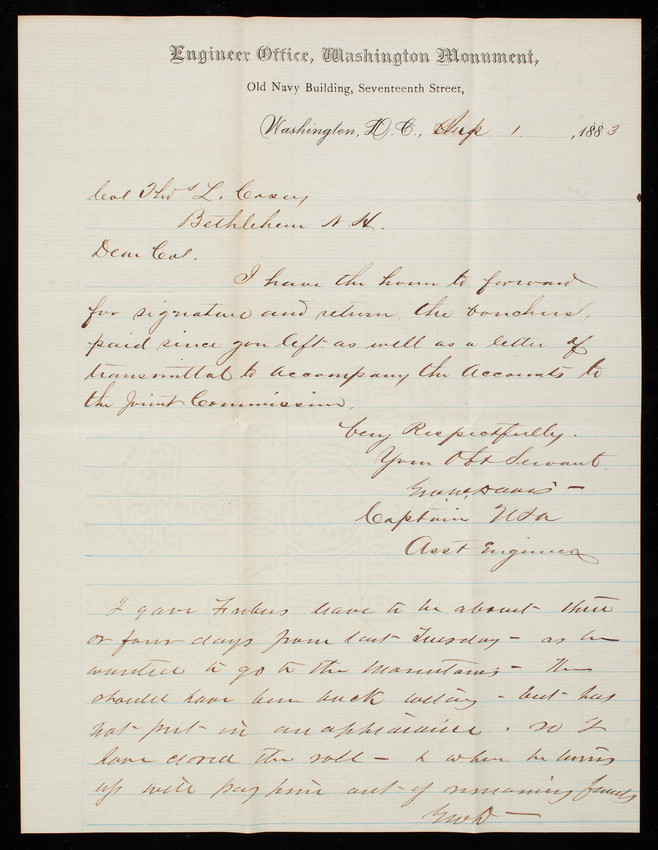 Engineer Office, Washington Monument,
Old Navy Building, Seventeenth Street,
Washington, D. C., Sep 1, 1883
Col Thos L. Casey
Bethlehem N H.
Dear Col.
I have the honor to forward
for signature and return the vouchers,
paid since you left as well as a letter of
transmittal to accompany the Accounts to
the Joint Commission,
Very Respectfully.
Your Obt Servant
Geo W. Davis
Captain USA
Asst Engineer
I gave leave to be absent three
or four days from last Tuesday - as he
wanted to go to the Mountains - He
should have been back - but has
not put in an appearance. so I
have closed the roll - & when he turns
up will pay him out of remaining funds
GWD